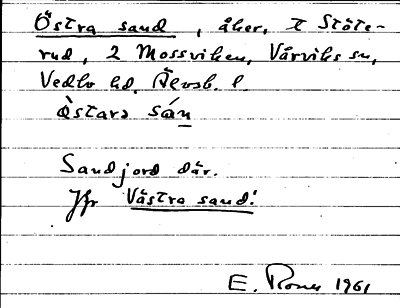 Östra sand, åker, t Stöte-
rud, 2 Mossviken, Vårviks sn,
Vedbo hd, Älvsb. l.
östarə sán
Sandjord där.
Jfr Västra sand!
E. 1961